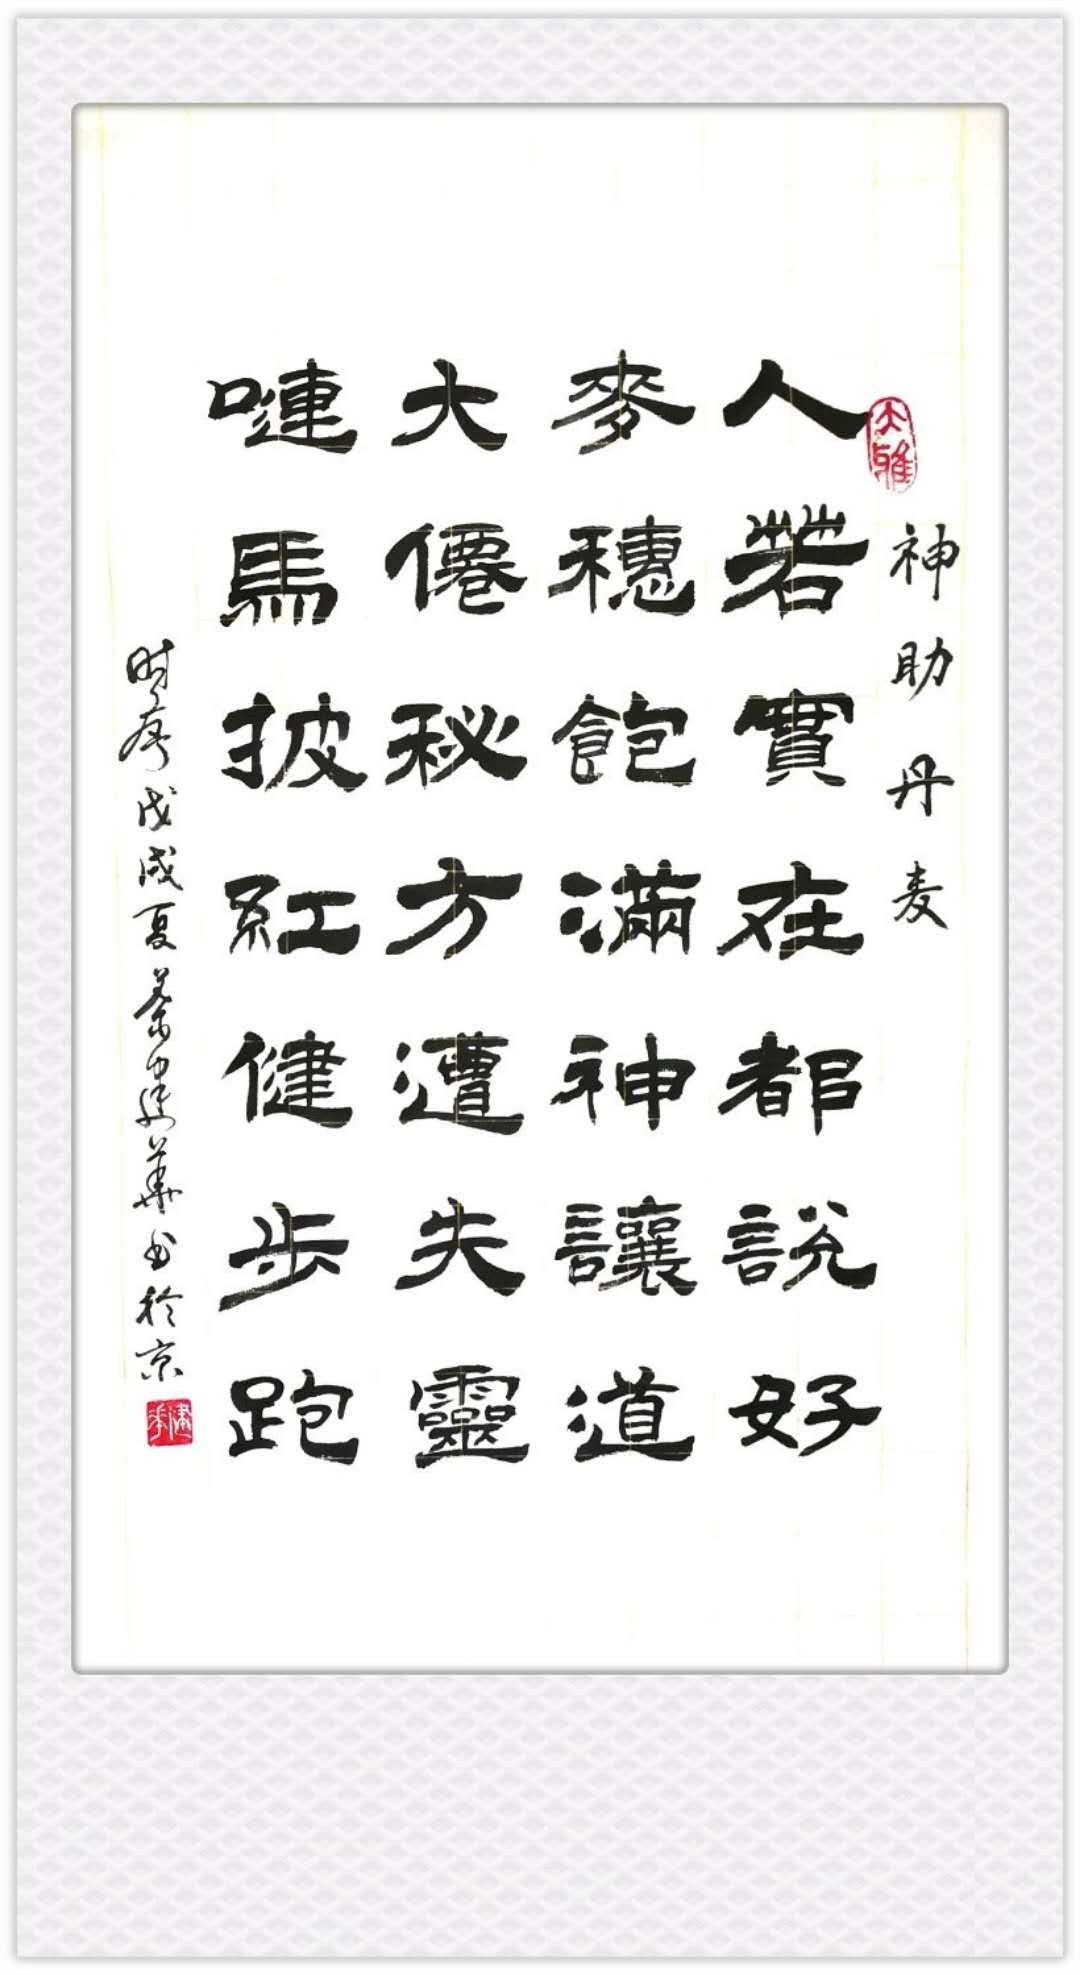 大雅
神助丹麦
人若實在都說好
麥穗飽滿神讓道
大僊秘方遭失靈
嗹馬披紅健步跑
时序戊戌夏蔡建華书於京